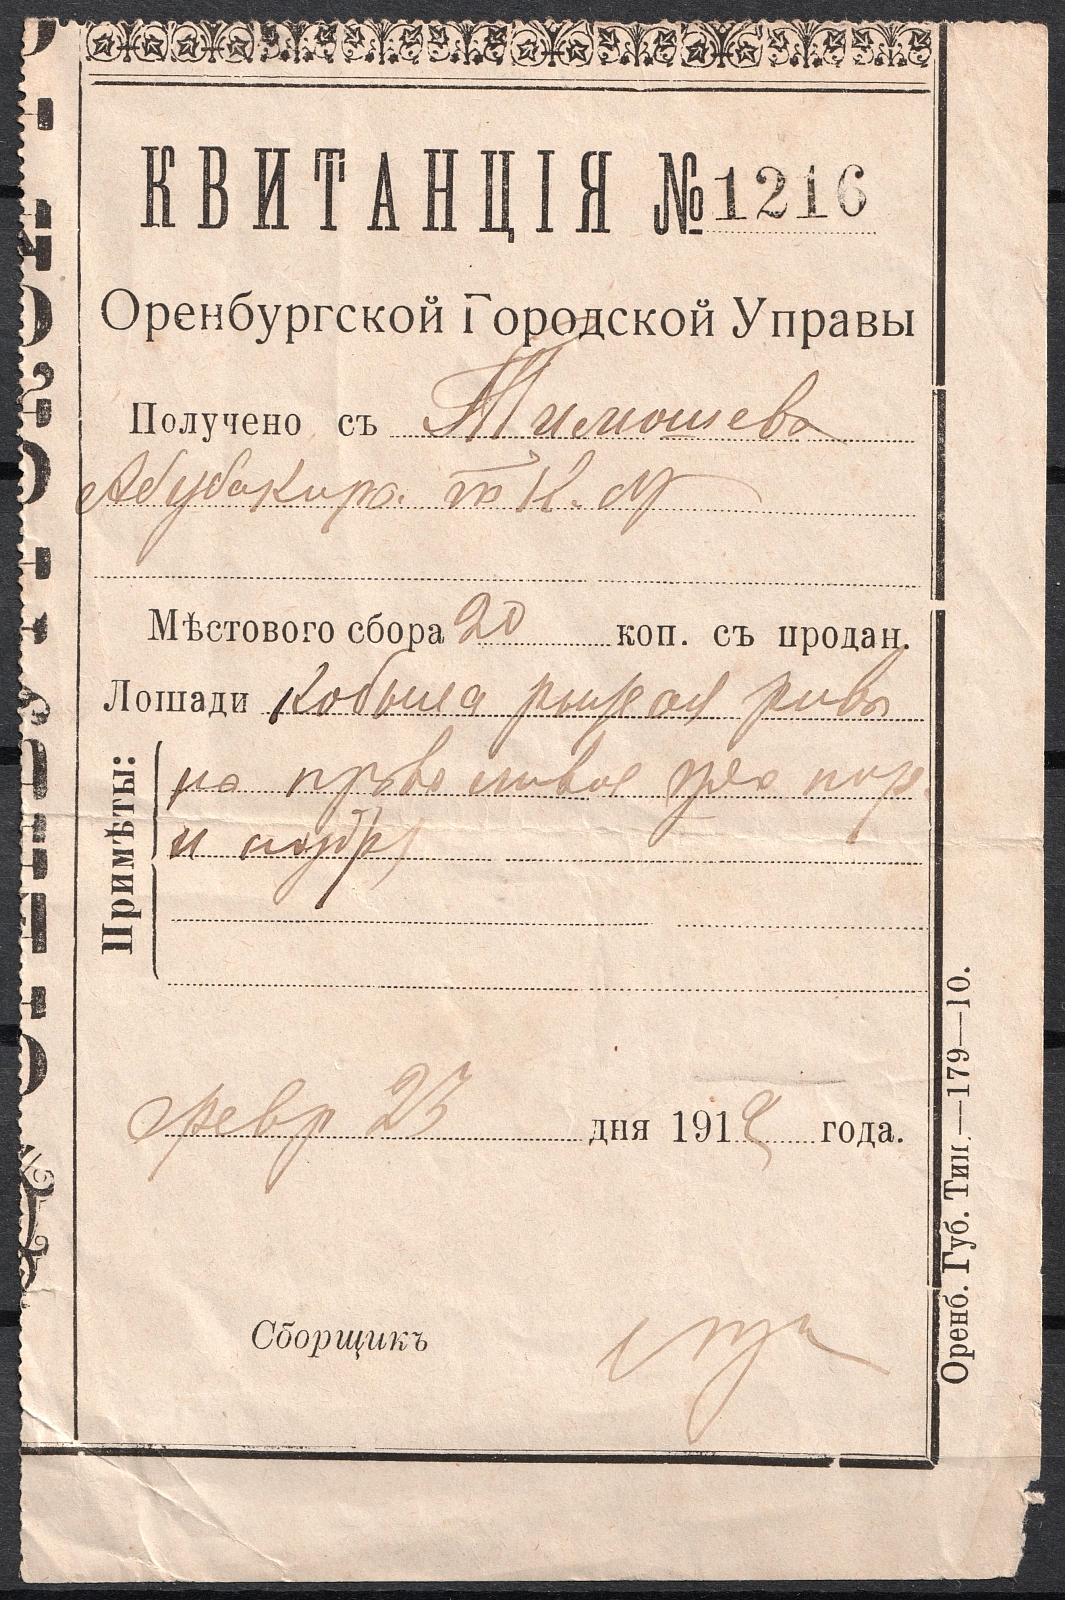 КВИТАНЦІЯ № 1216
Оренбургской Городской Управы
Получено съ Тимошева
Абубакир.
Мѣстового сбора 20 коп. съ продан.
Лошади кобыла рыжая грива
Примѣты: на права уха пор.
и
февр 23 дня 191 года.
Сборщикъ
Оренб. Губ. Тип.—179—10.